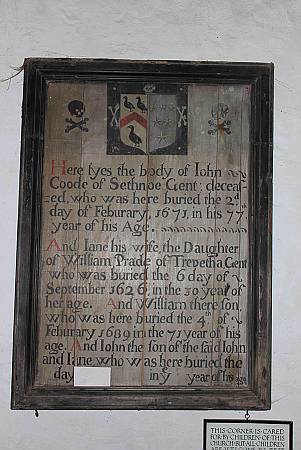 Here lyes the body of Iohn
Coode of Sethnoe Gent: deceaf=
=ed, who was here buried the 2.d
day of Feburary, 1673, in his 77.
year of his Age.
And Iane his wife, the Daughter
of William Prade of Trepetha, Gent
who was buried the 6 day of
September 1626, in the 30 year of
her age. And William there son
who was here buried the 4th of
Feburary 1689 in the 71 year of his
age. And Iohn the son of the said Iohn
and Iane who was here buried the
day in ye year of his age
THIS CORNER IS CARED
FOR BY CHILDREN OF THIS
CHURCH BUT ALL CHILDREN